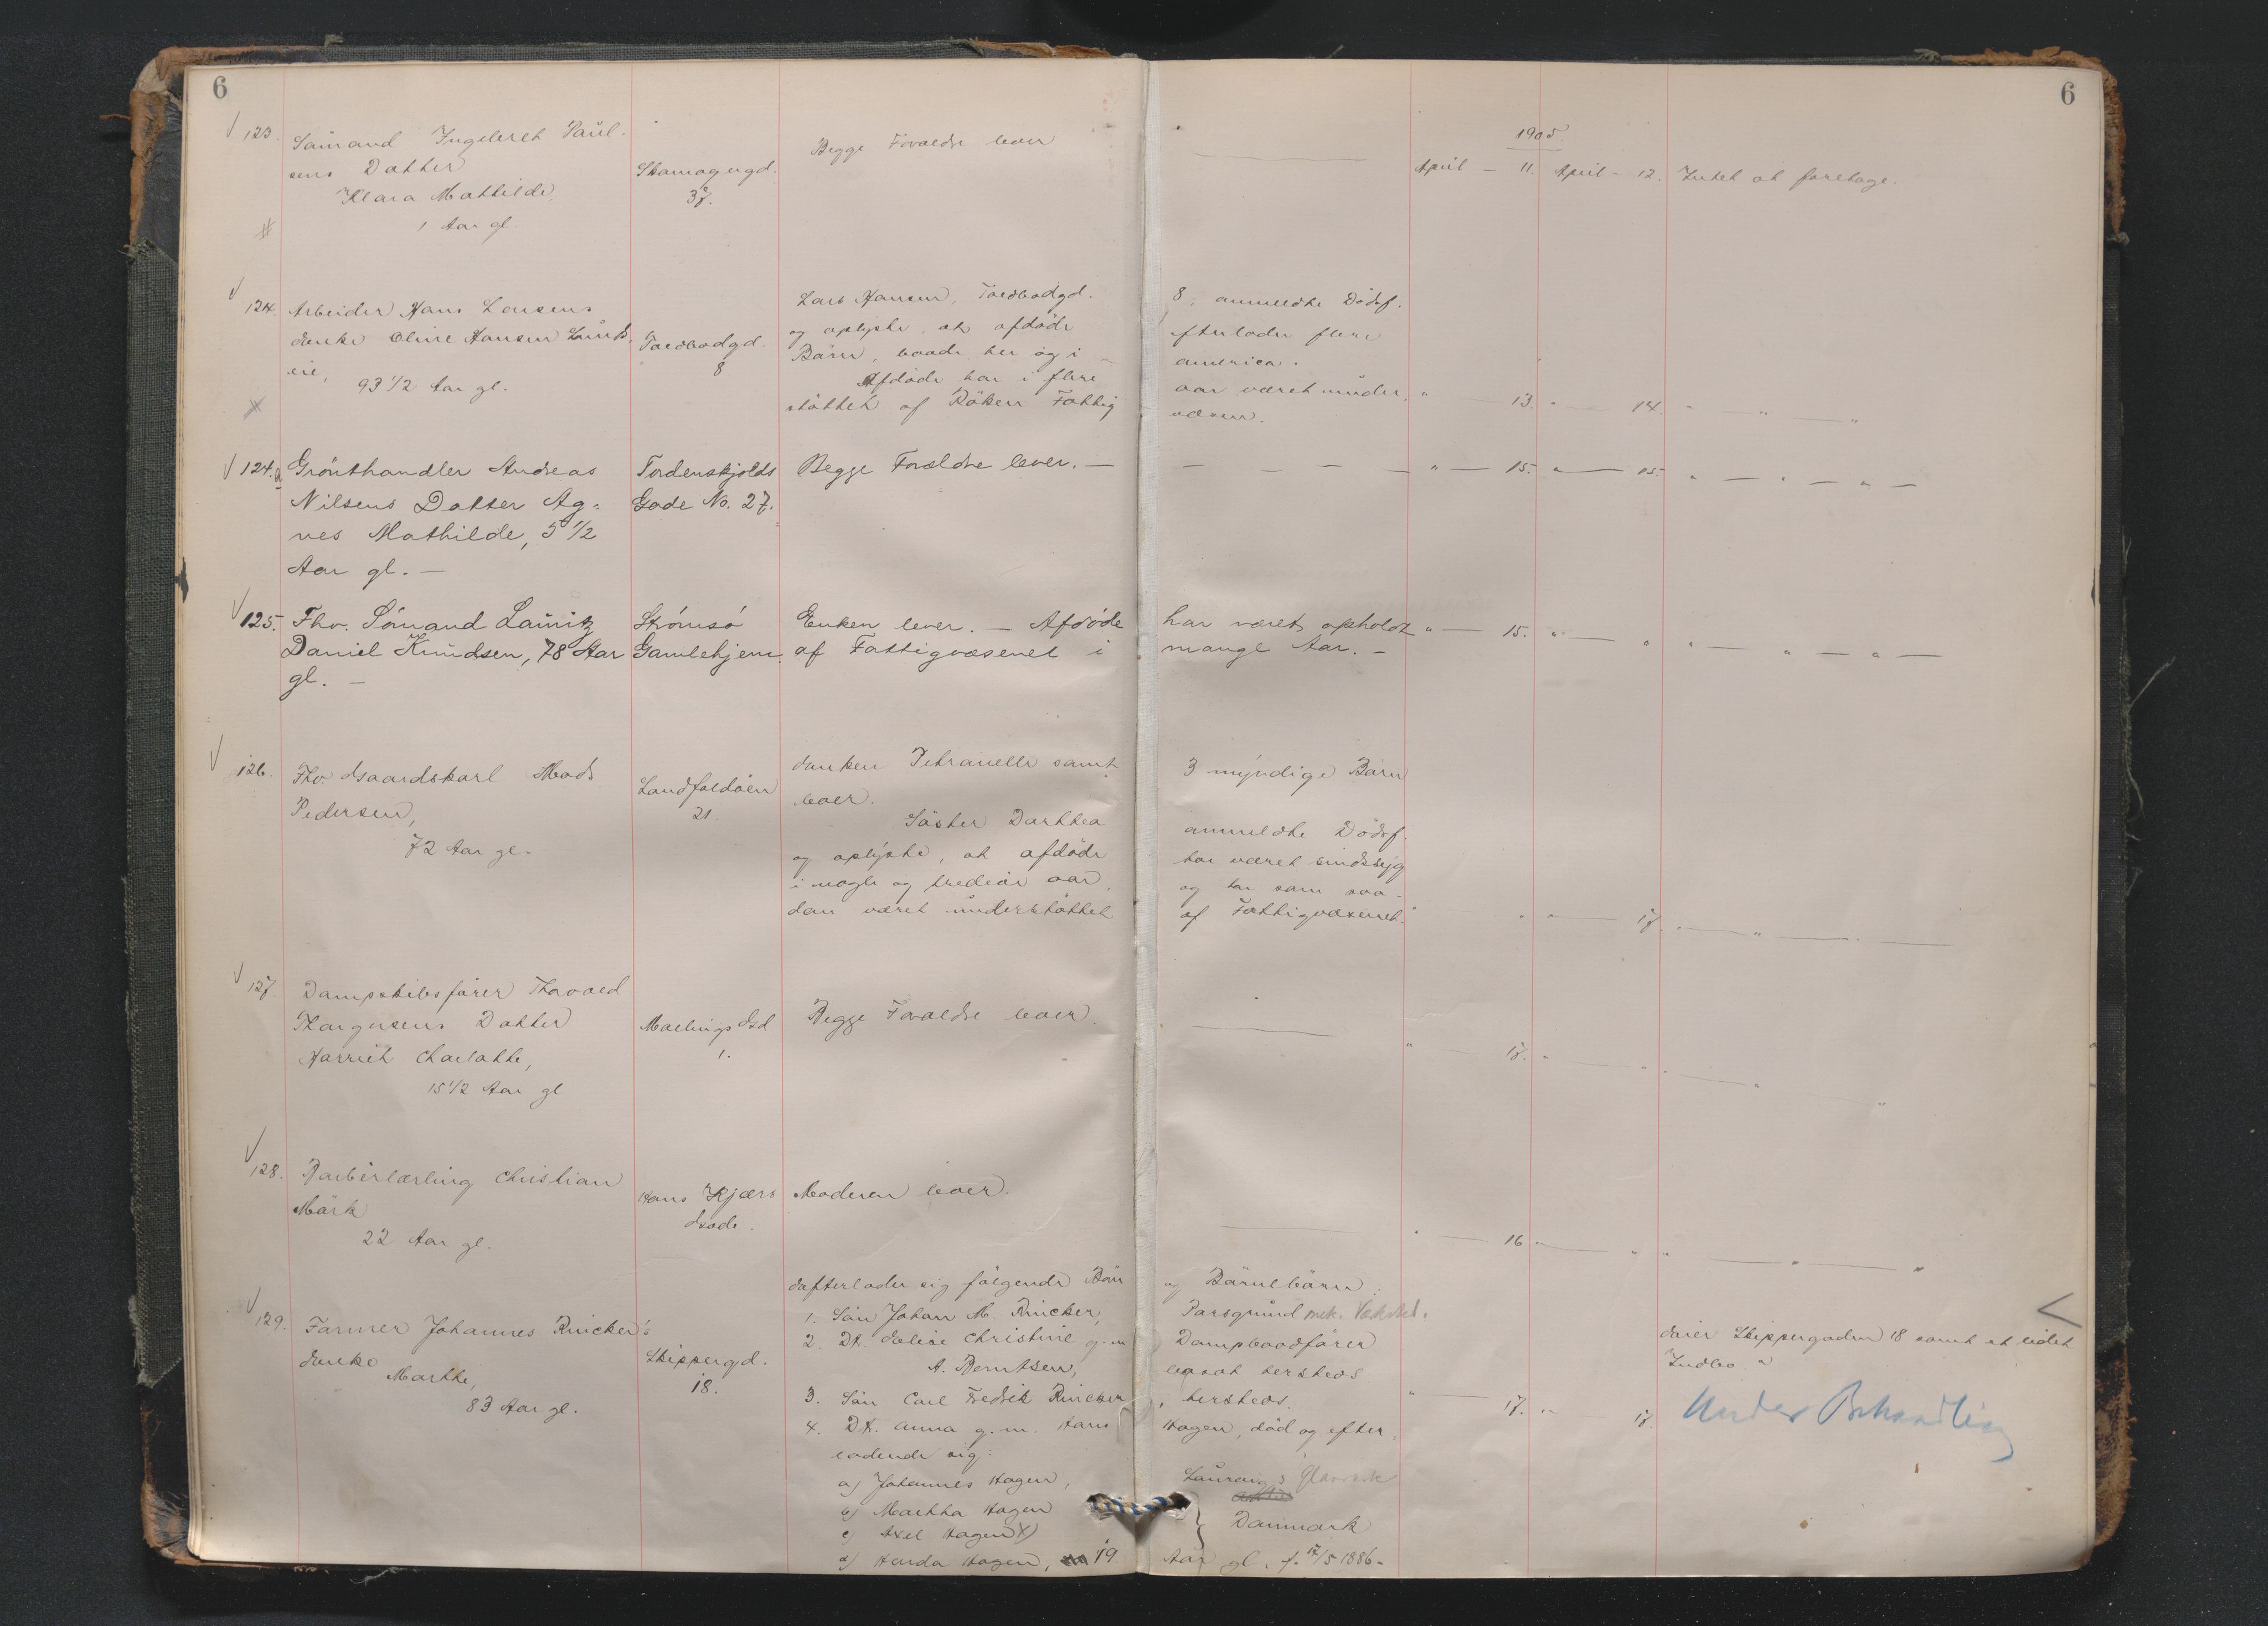 6
6
1905.
123. Sømand Ingebret Paul-
sens Datter
Klara Mathilde,
1 Aar gl.
Skomagergd.
37.
Begge Forældre lever
April — 11. April — 12. Intet at foretage.
124. Arbeider Hans Larsens
Enke Oline Hansen
93 1/2 Aar gl.
Toldbodgd.
8
Lars Hansen, Toldbodgd. 8, anmeldte Dødsf.
og oplyste, at afdøde efterlader flere
Børn, baade her og i America.
Afdøde har i flere aar været under-
støttet af Røken Fattigvæsen.
" — 13. " — 14. " — " — "
124.a Grønthandler Andreas
Nilsens Datter Ag-
nes Mathilde, 5 1/2
Aar gl. —
Tordenskjolds
Gade No. 27.
Begge Forældre lever. —
" — 15. " — 15. " — " — " —
125. Fhv. Sømand Lauritz
Daniel Knudsen, 78 Aar
gl. —
Strømsø
Gamlehjem.
Enken lever. — Afdøde har været opholdt
af Fattigvæsenet i mange Aar. —
" — 15. " — " " — " — " —
126. Fhv. Gaardskarl Mads
Pedersen,
72 Aar gl.
Landfaldøen
21.
Enken Petranelle samt 3 myndige Børn
lever.
Søster Dorthea anmeldte Dødsf.
og oplyste, at afdøde har været sindssyg
i nogle og tredive aar, og har som saa-
dan været understøttet af Fattigvæsenet.
" " — 17. " — " — " —
127. Dampskibsfører Thorvald
Thorgersens Datter
Harriet Charlotte,
15 1/2 Aar gl
Mællings Gd
1.
Begge Forældre lever.
" — 17. " — " " — " — "
128. Barberlærling Christian
Mørk
22 Aar gl.
Hans Kjærs
Gade.
Moderen lever.
" — 16 " — " " — " — "
129. Farver Johannes Rincker's
Enke
Marthe,
83 Aar gl.
Skippergd.
18.
Efterlader sig følgende Børn og Børnebørn:
1. Søn Johan M. Rincker, Porsgrund mek. Værksted.
2. Dt. Elise Christine g. m. Dampbaadfører
A. Berntsen, bosat hersteds.
3. Søn Carl Fredrik Rincker, hersteds.
4. Dt. Anna g. m. Hans Hagen, død og efter-
ladende sig:
a) Johannes Hagen, Glasværk
b) Martha Hagen
c) Axel Hagen x) } Danmark
d) Harda Hagen, 19 Aar gl. f. 17/5 1886 -
" — 17. " — 17.
Eier Skippergaden 18 samt et lidet
Indbo.
Under Behandling